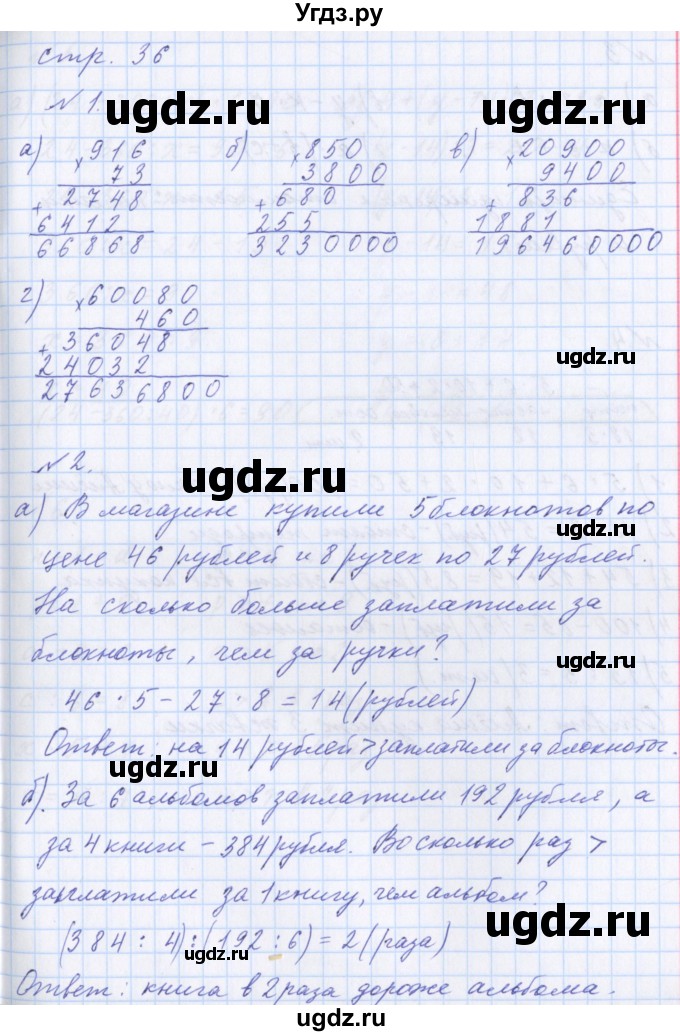 Угдз.ру
стр. 36
№1.
а) ×916 б) ×850 в) ×20900
73 3800 9400
+2748 +680 +836
6412 255 1881
66868 3230000 196460000
г) ×60080
460
+36048
24032
27636800
№2.
а) В магазине купили 5 блокнотов по
цене 46 рублей и 8 ручек по 27 рублей.
На сколько больше заплатили за
блокноты, чем за ручки?
46 · 5 - 27 · 8 = 14 (рублей)
Ответ: на 14 рублей > заплатили за блокноты.
б). За 6 альбомов заплатили 192 рубля, а
за 4 книги - 384 рубля. Во сколько раз >
заплатили за 1 книгу, чем альбом?
(384 : 4) : (192 : 6) = 2 (раза)
Ответ: книга в 2 раза дороже альбома.
ugdz.ru
ugdz.ru
ugdz.ru
ugdz.ru
ugdz.ru
ugdz.ru
ugdz.ru
ugdz.ru
ugdz.ru
ugdz.ru
ugdz.ru
ugdz.ru
ugdz.ru
ugdz.ru